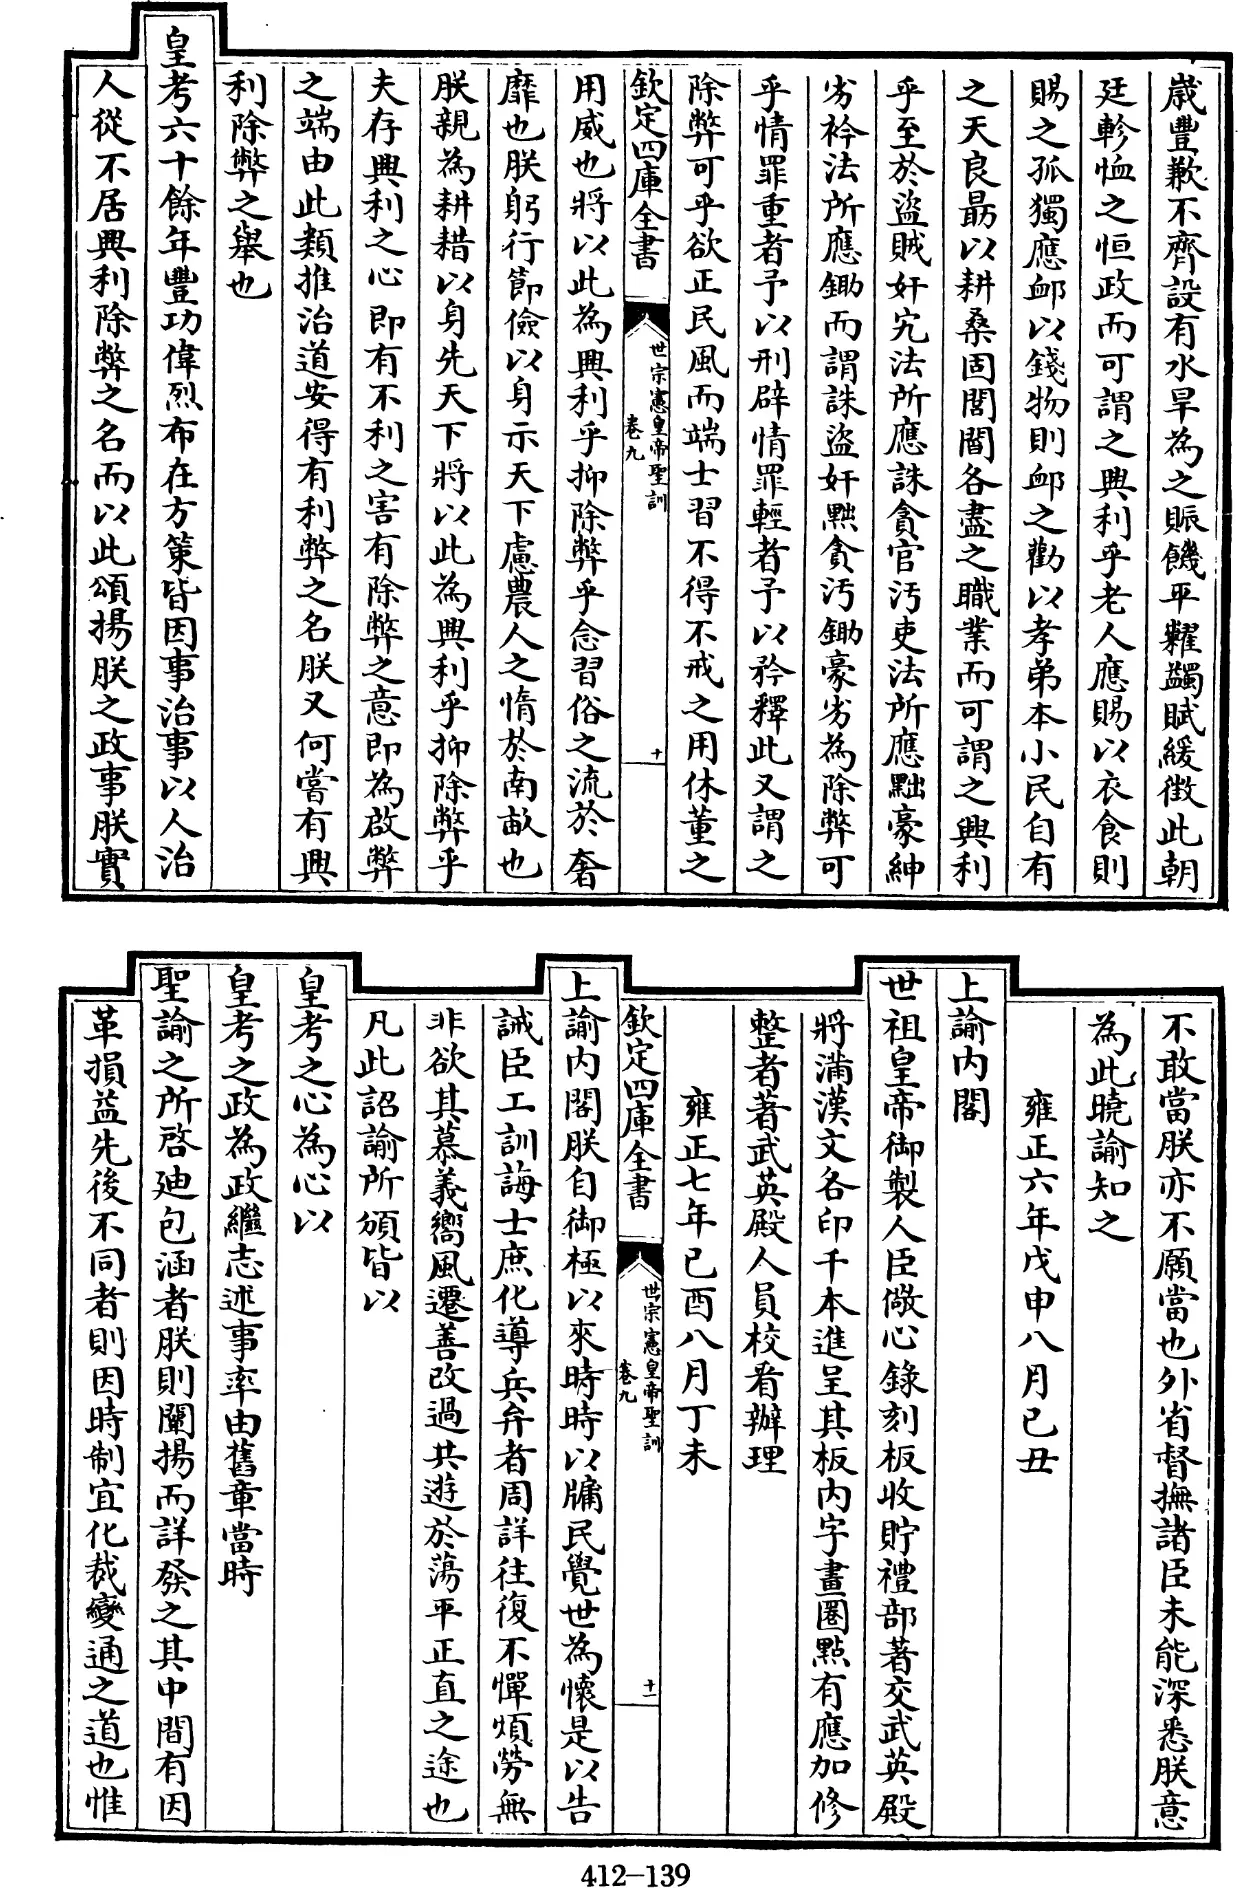 歲豐歉不齊設有水旱為之賑饑平糶蠲賦緩徵此朝
廷軫恤之恒政而可謂之興利乎老人應賜以衣食則
賜之孤獨應䘏以錢物則䘏之勸以孝弟本小民自有
之天良勗以耕桑固閭閻各盡之職業而可謂之興利
乎至於盜賊奸宄法所應誅貪官污吏法所應黜豪紳
劣衿法所應鋤而謂誅盜奸黜貪污鋤豪劣為除弊可
乎情罪重者予以刑辟情罪輕者予以矜釋此又謂之
除弊可乎欲正民風而端士習不得不戒之用休董之
欽定四庫全書
世宗憲皇帝聖訓
卷九
十
用威也將以此為興利乎抑除弊乎念習俗之流於奢
靡也朕躬行節儉以身示天下慮農人之惰於南畝也
朕親為耕耤以身先天下將以此為興利乎抑除弊乎
夫存興利之心即有不利之害有除弊之意即為啟弊
之端由此類推治道安得有利弊之名朕又何嘗有興
利除弊之舉也
皇考六十餘年豐功偉烈布在方策皆因事治事以人治
人從不居興利除弊之名而以此頌揚朕之政事朕實
不敢當朕亦不願當也外省督撫諸臣未能深悉朕意
為此曉諭知之
雍正六年戊申八月己丑
上諭內閣
世祖皇帝御製人臣儆心錄刻板收貯禮部著交武英殿
將滿漢文各印千本進呈其板內字畫圈點有應加修
整者著武英殿人員校看辦理
雍正七年己酉八月丁未
欽定四庫全書
世宗憲皇帝聖訓
卷九
十一
上諭內閣朕自御極以來時時以牖民覺世為懷是以告
誡臣工訓誨士庶化導兵弁者周詳往復不憚煩勞無
非欲其慕義嚮風遷善改過共遊於蕩平正直之途也
凡此詔諭所頒皆以
皇考之心為心以
皇考之政為政繼志述事率由舊章當時
聖諭之所啓廸包涵者朕則闡揚而詳發之其中間有因
革損益先後不同者則因時制宜化裁變通之道也惟
412-139